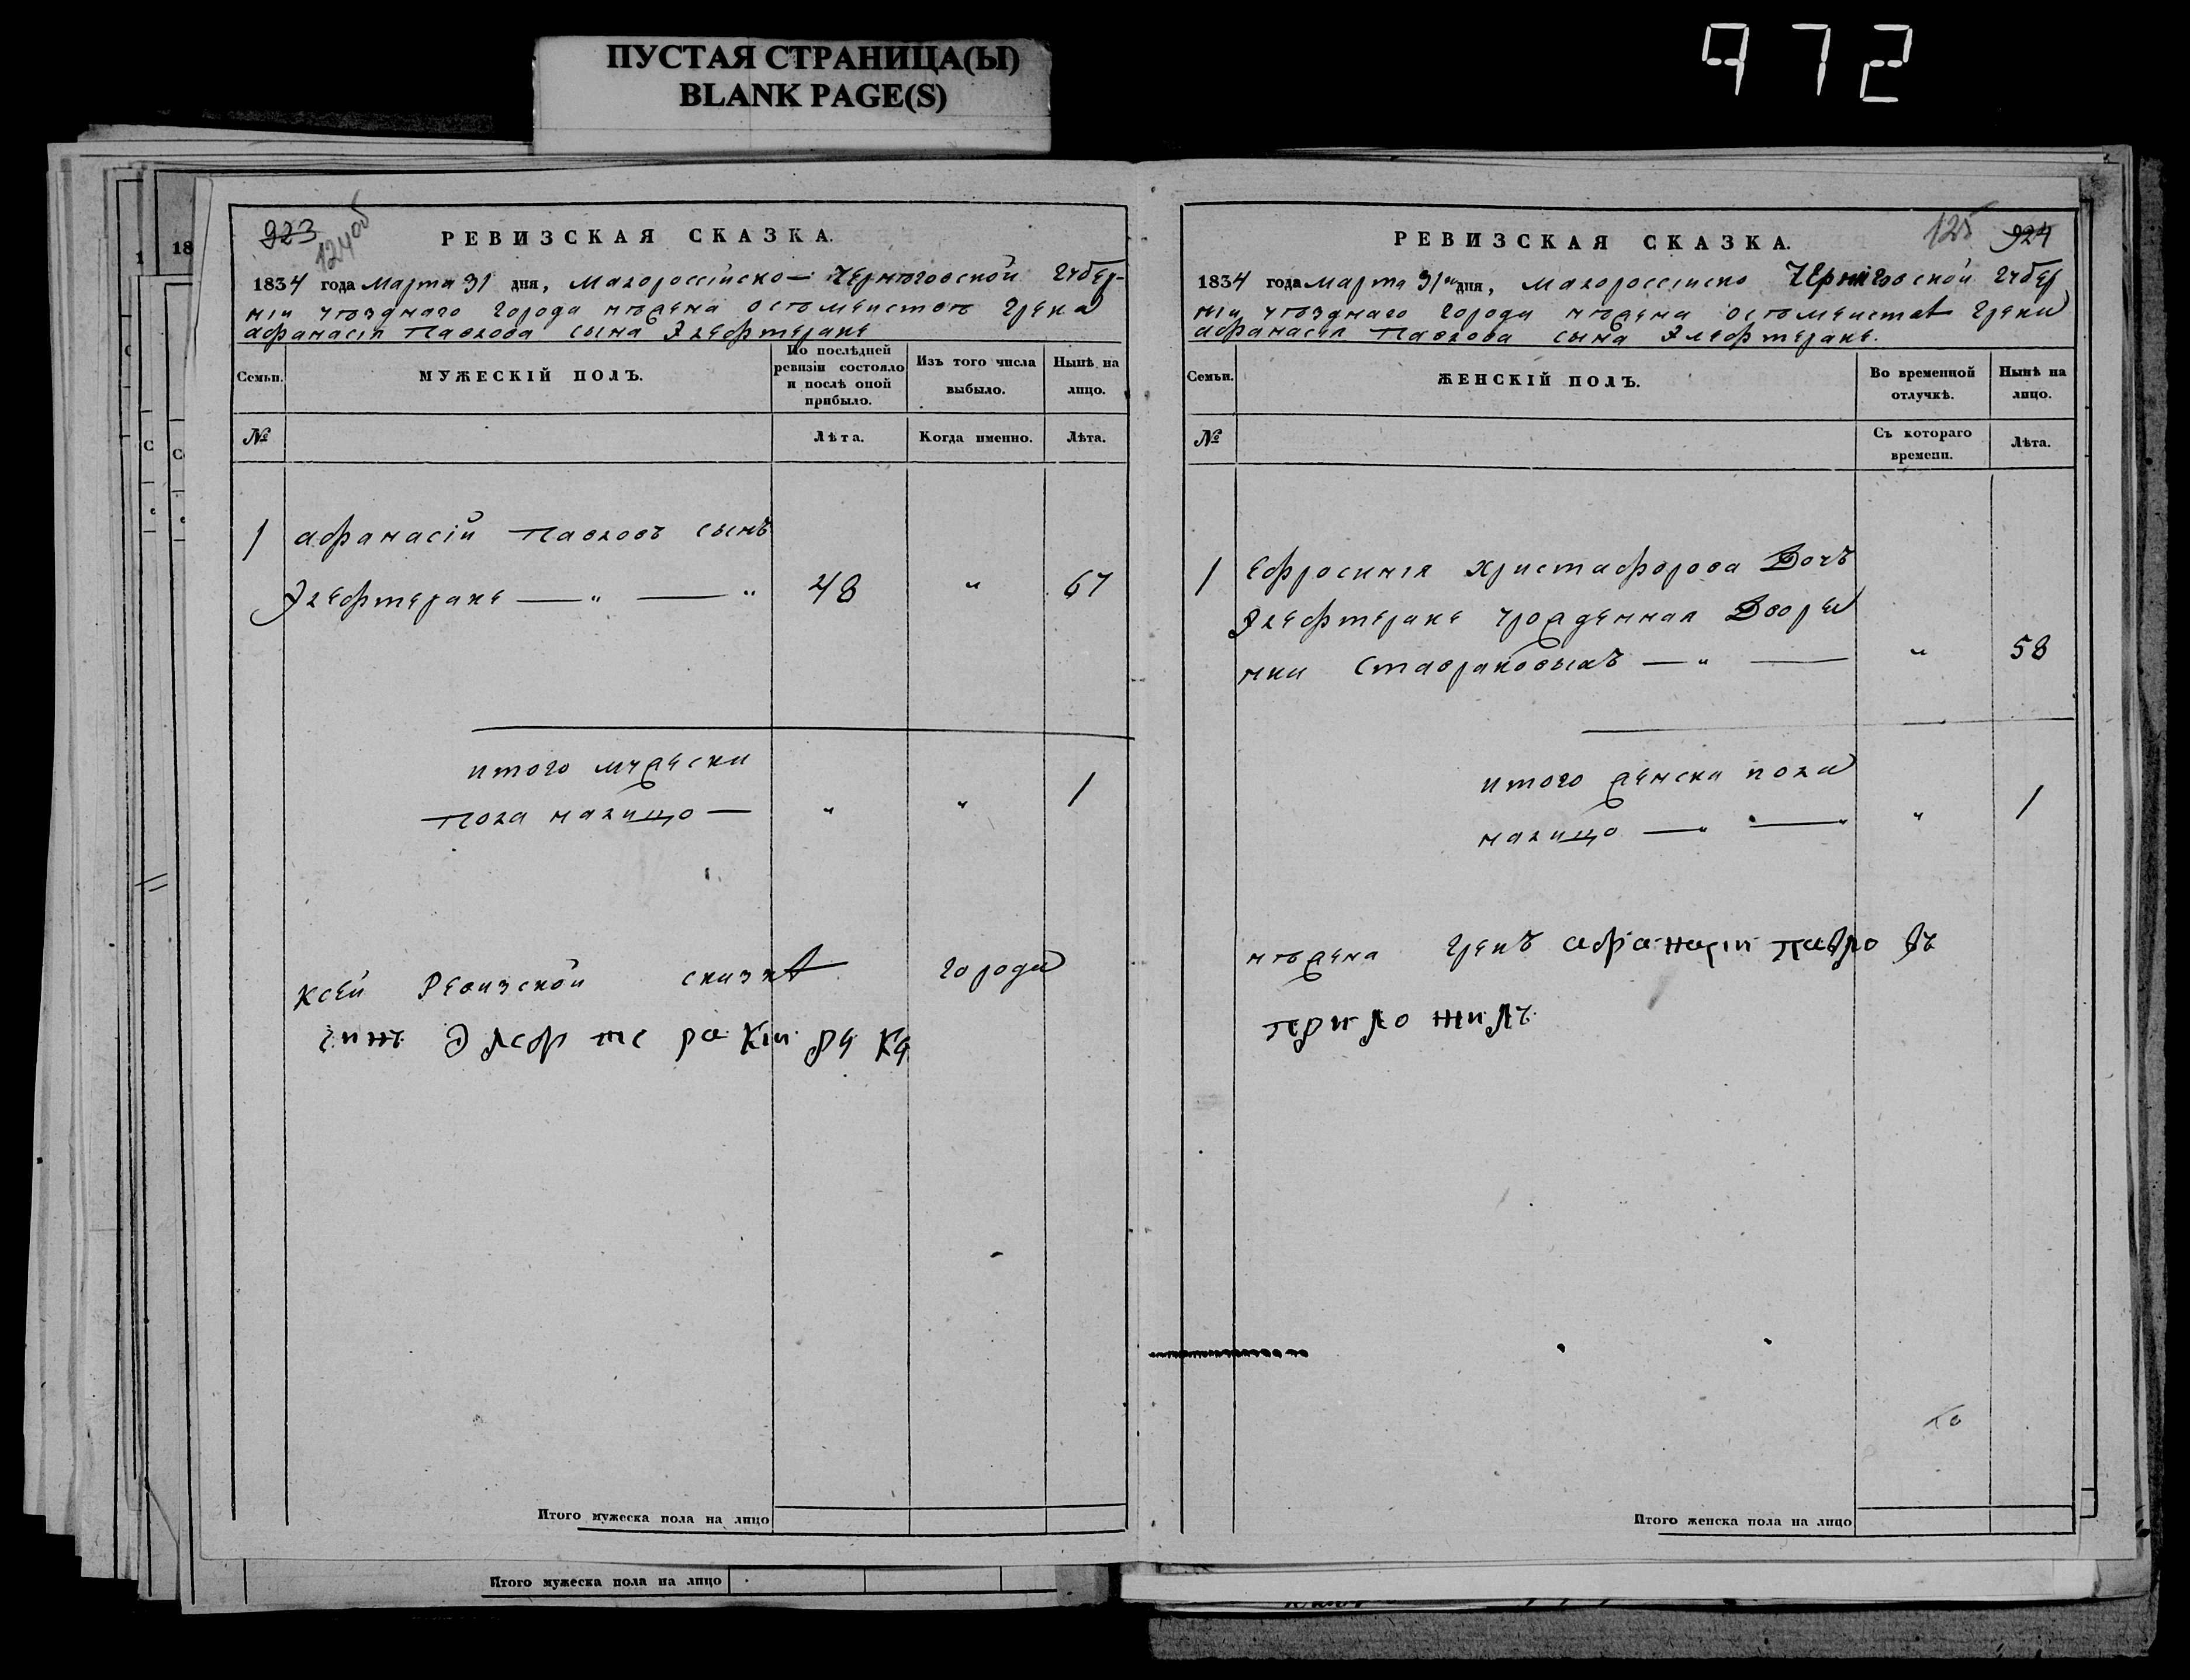 ПУСТАЯ СТРАНИЦА(Ы)
BLANK PAGE(S)
972
923
124об
РЕВИЗСКАЯ СКАЗКА.
1834 года Марта 31 дня, Малороссійско-Черниговской Губер-
ніи уѣзднаго города Нѣжена
Афанасія Павлова сына Элефтераке
Семьи.
МУЖЕСКІЙ ПОЛЪ.
По послѣдней ревизіи состояло и послѣ оной прибыло.
Изъ того числа выбыло.
Нынѣ на лицо.
№
Лѣта.
Когда именно.
Лѣта.
1 Афанасій Павловъ сынъ
Элефтераке — " — " 48 " 67
итого мужеска
пола налицо — " " 1
Ксей Ревизской сказкѣ города
Элефтеракій руку
Итого мужеска пола на лицо
Итого мужеска пола на лицо
125
924
РЕВИЗСКАЯ СКАЗКА.
1834 года Марта 31го дня, Малороссійско Черниговской Губер
ніи, уѣзднаго города Нѣжена Грека
Афанасія Павлова сына Элефтераке.
Семьи.
ЖЕНСКІЙ ПОЛЪ.
Во временной отлучкѣ.
Нынѣ на лицо.
№
Съ котораго времени.
Лѣта.
1 Ефросинія Христафорова Дочъ
Элефтераке урожденная Дворя
нки Ставраковыхъ — " — " 58
итого женска пола
налицо — " — " " 1
нѣжена Грекъ Афанасій Павловъ
приложилъ
Итого женска пола на лицо